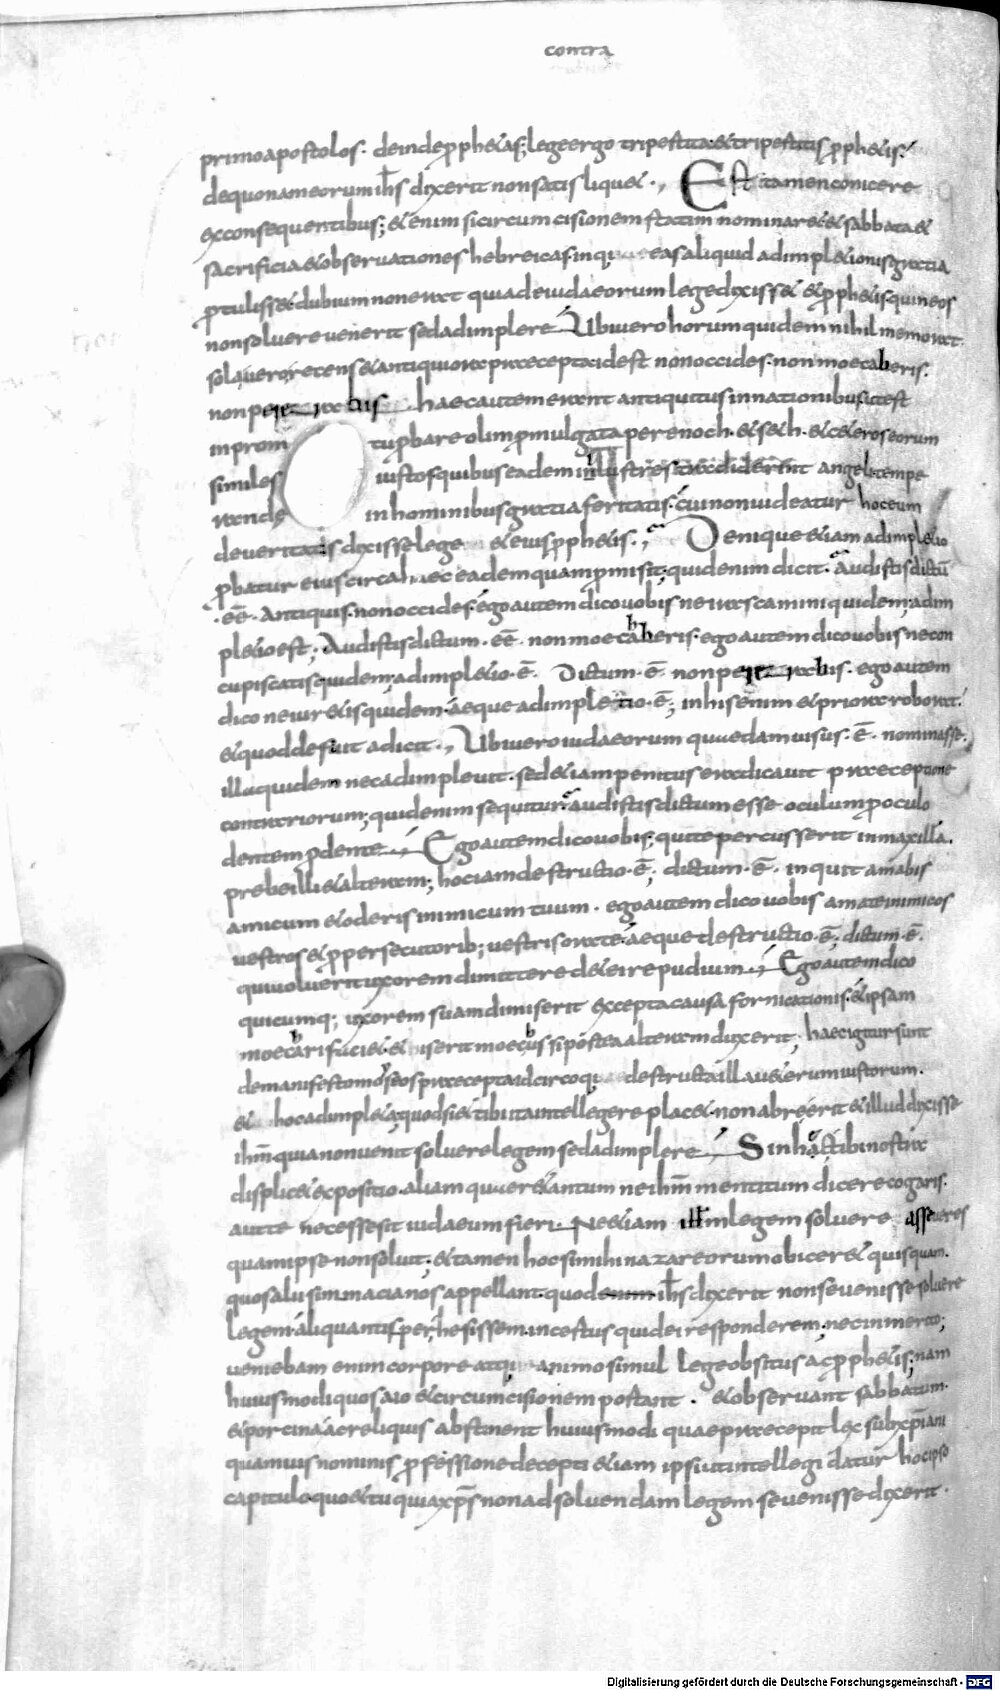 contra
primo apostolos · deinde pphetas; lege ergo tripertita · et tripertitis pphetis ·
de quonam eorum ihs dixerit non satis liquet · Est tamen conicere
ex consequentibus; et enim si circumcisionem statim nominaret et sabbata et
sacrificia et observationes hebreicas · inqu eas aliquid adimpletionis gratia
ptulisset dubium non erat quia de iudaeorum lege dixisset et pphetis qui neos
non solvere venerit sed adimplere Ubi vero horum quidem nihil memorat
sola vero recenset antiquiora praecepta id est non occides · non moecaberis ·
non peierabis haec autem erant antiquitus in nationibus ut est
in prom tu pbare olim pmulgata per enoch · et seth · et ceteros eorum
similes iustos quibus eadem inlustres tradiderint angeli tempe
rande in hominibus gratia feritatis · cui non videatur hoc eum
de veritatis dixisse lege et eius pphetis · Denique etiam adimpletio
pbatur eius circa haec eadem quam pmisit; quid enim dicit · Audistis dictū
· eē · Antiquis · non occides · ego autem dico vobis ne irascamini quidem; adim
pletio est; Audistis dictum · eē · non moecaberis · ego autem dico vobis ne con
cupiscatis quidem; adimpletio · ē · Dictum · ē · non peierabis · ego autem
dico ne iuretis quidem · aeque adimpletio · ē; in his enim et priora roborat ·
et quod defuit adicit · Ubi vero iudaeorum quaedam visus · ē · nominasse ·
illa quidem nec adimplevit · sed etiam penitus eradicavit praeceptione
contrariorum; quid enim sequitur · audistis dictum esse oculum p oculo
dentem p dente Ego autem dico vobis; qui te percusserit in maxilla ·
prebe illi et alteram; hoc iam destructio · ē; dictum · ē · inquit amabis
amicum et oderis inimicum tuum · ego autem dico vobis amate inimicos
vestros et p persecutorib; vestris orate · aeque destructio · ē; dictum · ē ·
qui voluerit uxorem dimittere det ei repudium Ego autem dico
quicumq; uxorem suam dimiserit excepta causa fornicationis · et ipsam
moecari facit et iserit moecus si postea alteram duxerit; haec igitur sunt
de manifesto moseos praecepta idcirco qu destructa illa veterum iustorum ·
et hoc adimpleta; quodsi et tibi ita intellegere placet · non abre erit et illud dixisse
ihm quia non venit solvere legem sed adimplere Sin haec tibi nostra
displicet expositio · aliam quaere tantum ne ihm mentitum dicere cogaris ·
aut te necesse sit iudaeum fieri · Ne etiam illum legem solvere asseveres
quam ipse non solvit; et tamen hoc si mihi nazareorum obiceret quisquam ·
quos alii simmacianos appellant · quod enim ihs dixerit non se venisse solvere
legem · aliquantisper hesissem incertus quid ei responderem; nec inmerito;
veniebam enim corpore atqu animo simul lege obsitus ac pphetis; nam
huiusmodi quos aio et circumcisionem portant · et observant sabbatum ·
et porcina ac reliquis abstinent huiusmodi quae praecepit lex sub xpiani
quamvis nominis pfessione decepti etiam ipsi ut intellegi datur hoc ipso
capitulo quo et tu quia xps non ad solvendam legem se venisse dixerit ·
Digitalisierung gefördert durch die Deutsche Forschungsgemeinschaft - DFG